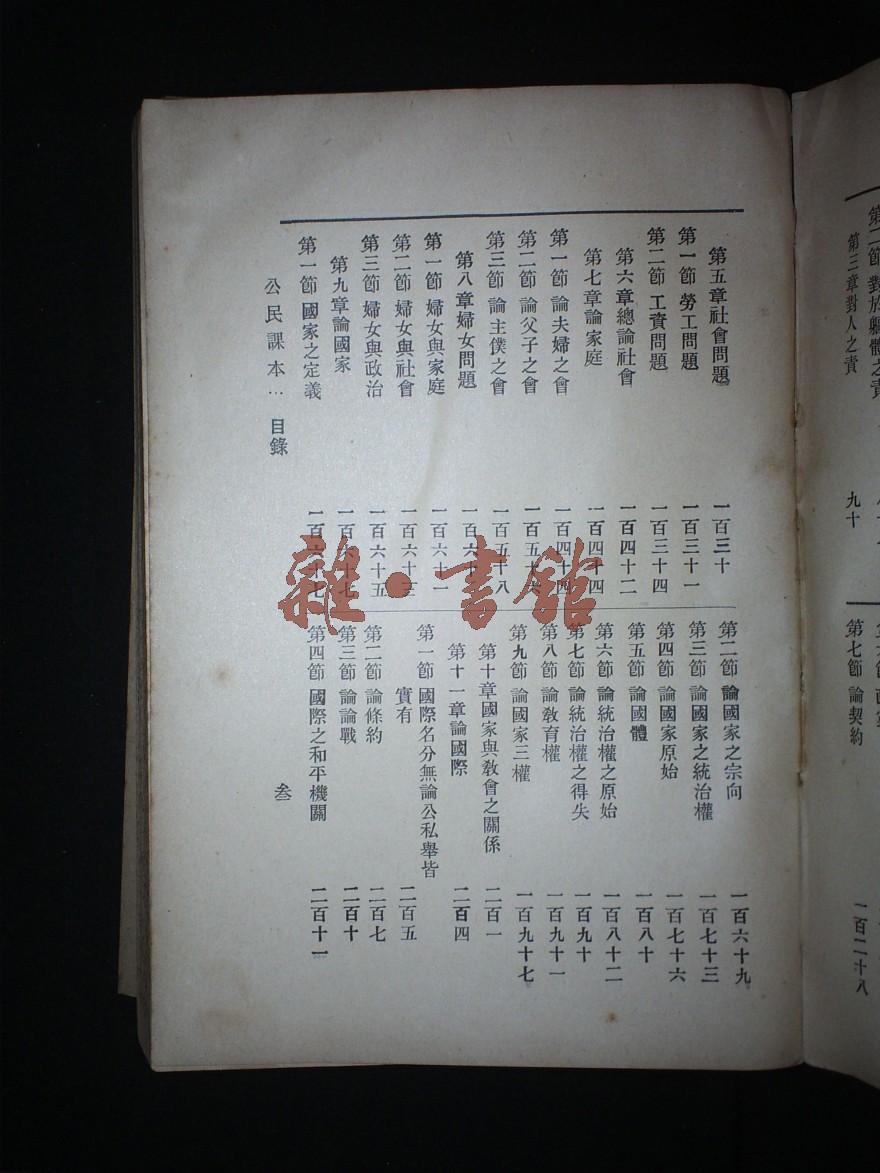 第二節 對於軀體之責
第三章對人之責
九十
第七節 論契約
一百二十八
第五章社會問題 一百三十
第一節 勞工問題 一百三十一
第二節 工資問題 一百三十四
第六章總論社會 一百四十二
第七章論家庭 一百四十四
第一節 論夫婦之會 一百四十四
第二節 論父子之會
第三節 論主僕之會 一百五十八
第八章婦女問題
第一節 婦女與家庭 一百六十一
第二節 婦女與社會 一百六十三
第三節 婦女與政治 一百六十五
第九章論國家 一百六十七
第一節 國家之定義 一百六十七
第二節 論國家之宗向 一百六十九
第三節 論國家之統治權 一百七十三
第四節 論國家原始 一百七十六
第五節 論國體 一百八十
第六節 論統治權之原始 一百八十二
第七節 論統治權之得失 一百九十
第八節 論敎育權 一百九十一
第九節 論國家三權 一百九十七
第十章國家與敎會之關係 二百一
第十一章論國際 二百四
第一節 國際名分無論公私舉皆
實有 二百五
第二節 論條約 二百七
第三節 論論戰 二百十
第四節 國際之和平機關 二百十一
公民課本… 目錄
叁
雜·書館